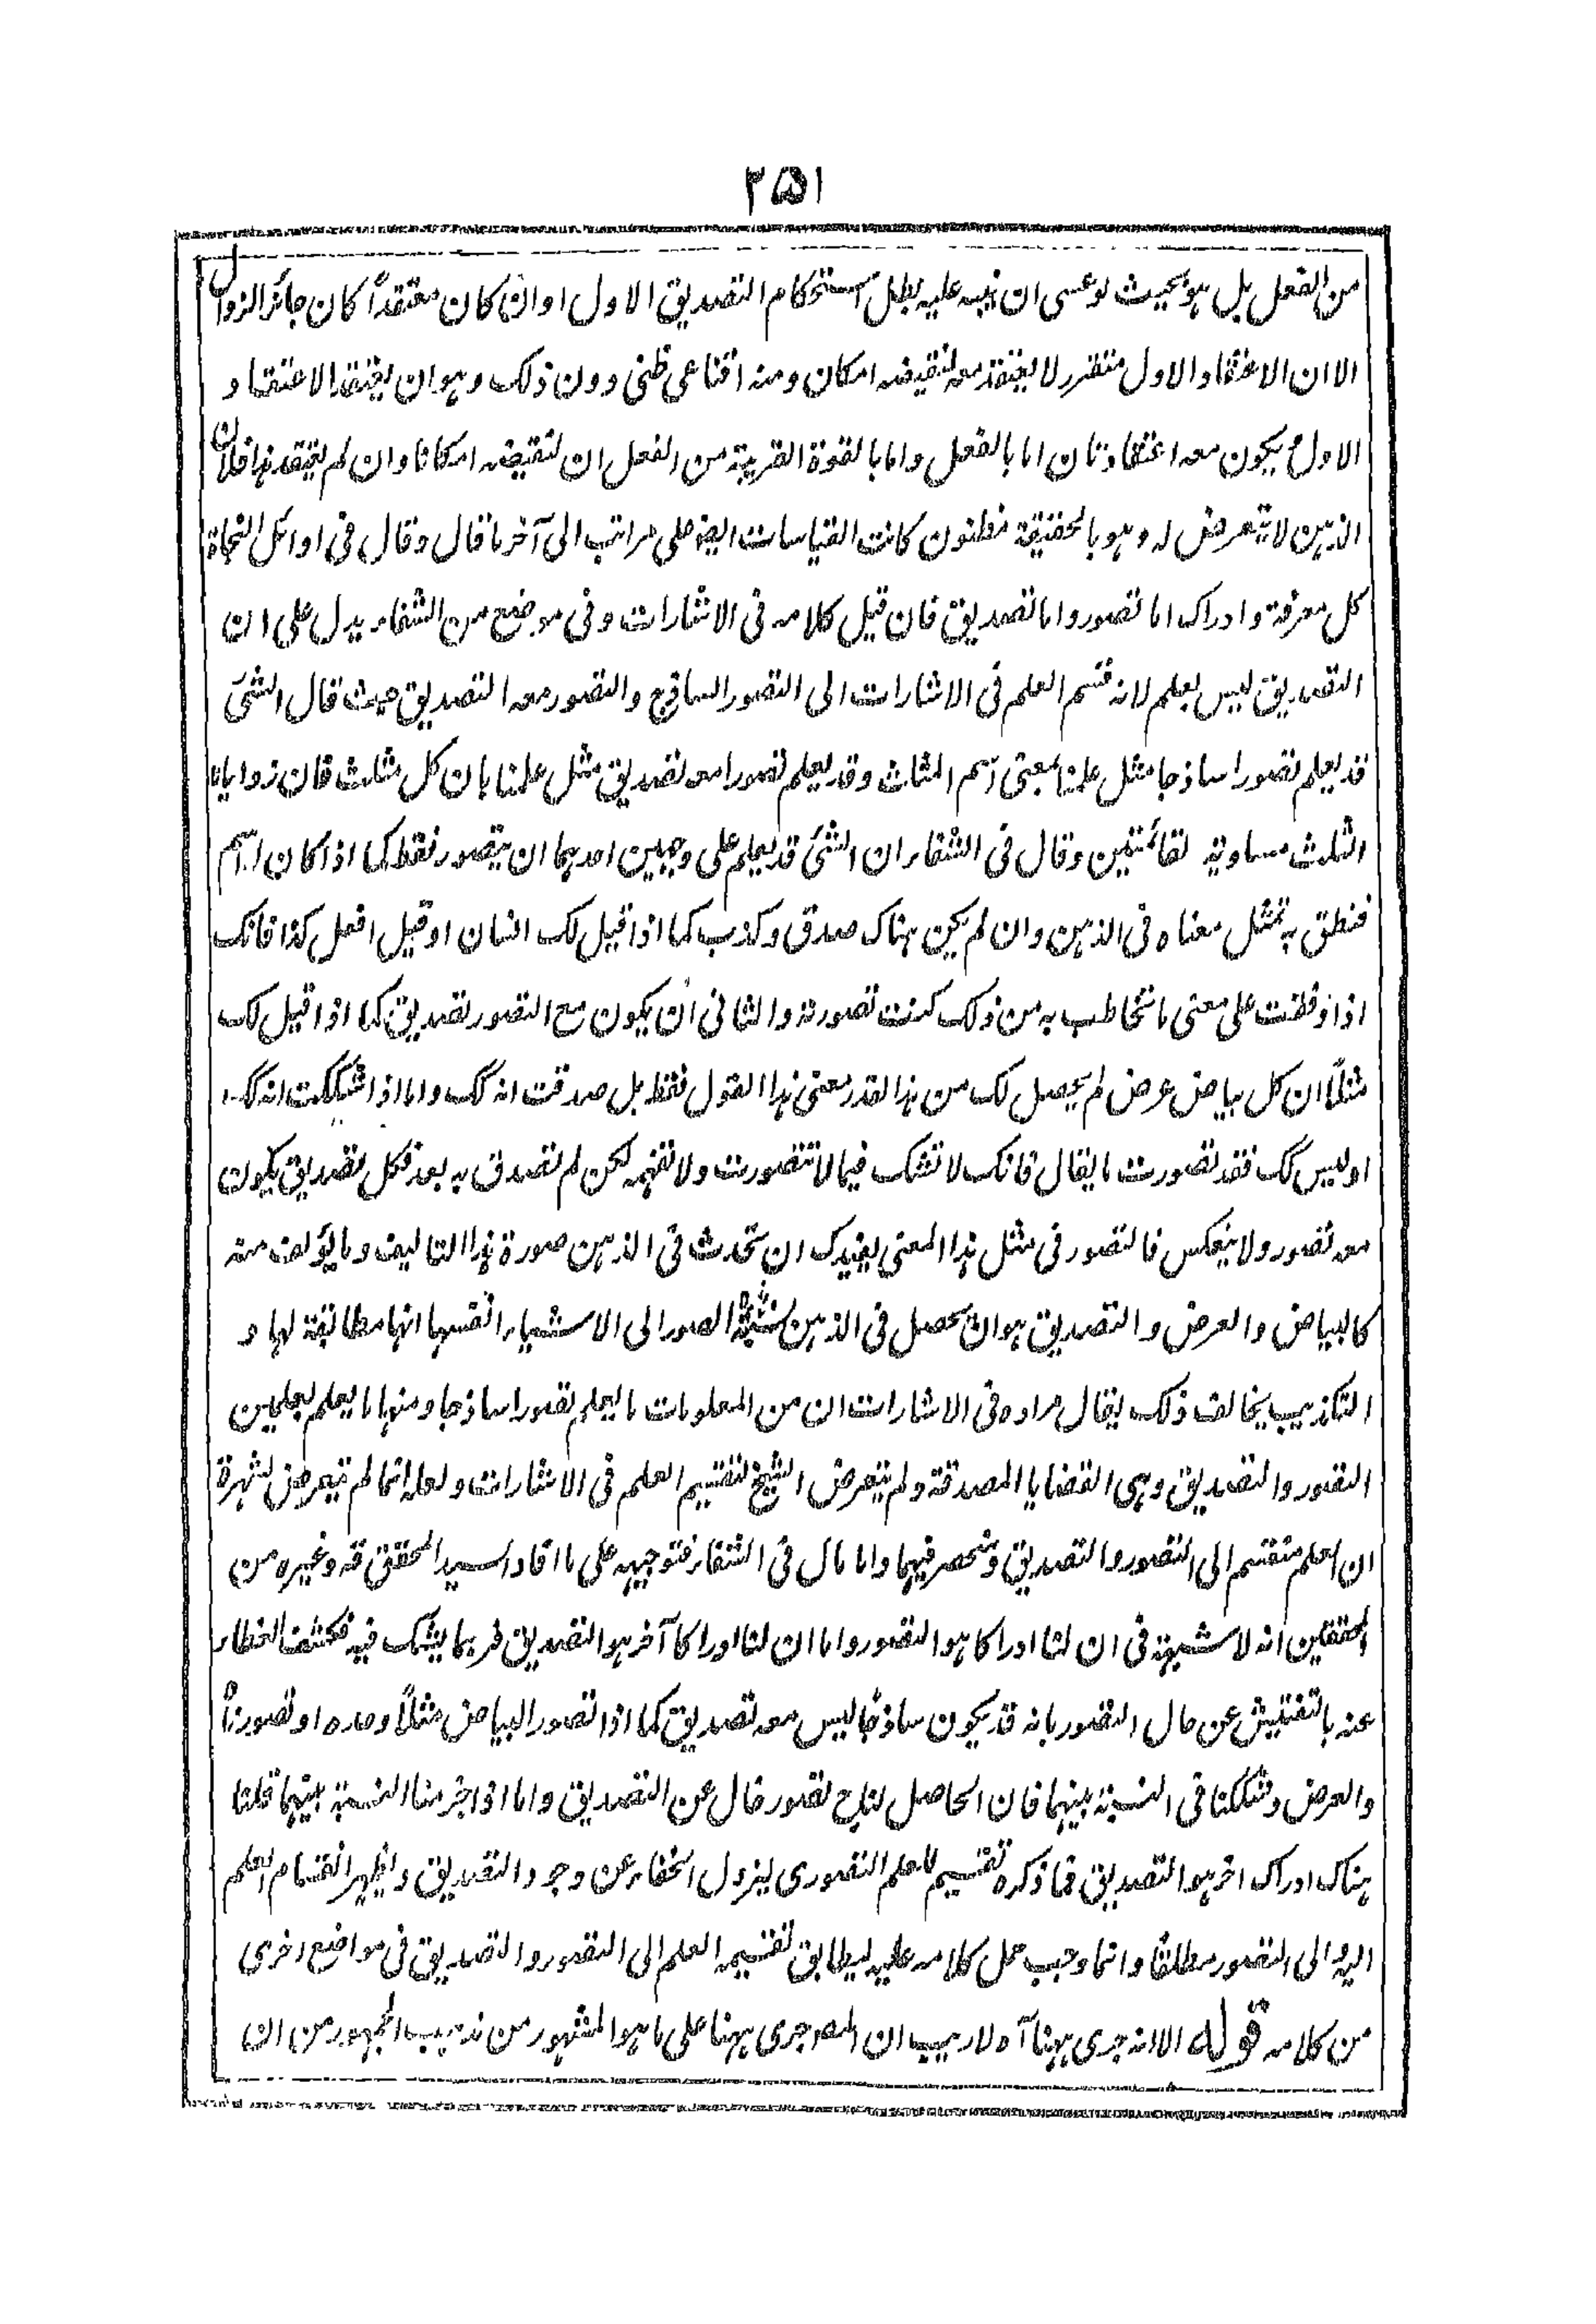 ٢٥١
من الفعل بل هو بحيث لو عسى ان نبه عليه بطل استحكام التصديق الاول او ان كان معتقداً كان جائز الزوال
الا ان الاعتقاد الاول متقرر لا يعتقد معه لنقيضه امكان ومنه اقناعى ظنى دون ذلك وهو ان يعتقد الاعتقاد
الاول ويكون معه اعتقاد ثان اما بالفعل واما بالقوة القريبة من الفعل ان لنقيضه امكانا وان لم يعتقد هذا فلان
الذهن لا يتعرض له وهو بالحقيقة مظنون كانت القياسات ايضا على مراتب الى آخر ما قال وقال فى اوائل النجاة
كل معرفة وادراك اما تصور واما تصديق فان قيل كلامه فى الاشارات وفى موضع من الشفاء يدل على ان
التصديق ليس بعلم لانه قسم العلم فى الاشارات الى التصور الساذج والتصور معه التصديق حيث قال الشئ
قد يعلم تصورا ساذجا مثل علمنا بمعنى اسم المثلث وقد يعلم تصورا معه تصديق مثل علمنا بان كل مثلث فان زواياه
الثلث مساوية لقائمتين وقال فى الشفاء ان الشئ قد يعلم على وجهين احدهما ان يتصور فقط كما اذا كان له اسم
فنطق به تمثل معناه فى الذهن وان لم يكن هناك صدق وكذب كما اذا قيل لك انسان او قيل افعل كذا فانك
اذا وقفت على معنى ما تخاطب به من ذلك كنت تصورته والثانى ان يكون مع التصور تصديق كما اذا قيل لك
مثلاً ان كل بياض عرض لم يحصل لك من هذا القدر معنى هذا القول فقط بل صدقت انه كك واما اذا شككت انه كك
او ليس كك فقد تصورت ما يقال فانك لا تشك فيما لا تتصورت ولا تفهمه لكن لم تصدق به بعد فكل تصديق يكون
معه تصور ولا ينعكس فالتصور فى مثل هذا المعنى يفيدك ان تحدث فى الذهن صورة هذا التاليف وما يؤلف منه
كالبياض والعرض والتصديق هو ان يحصل فى الذهن نسبة الصور الى الاشياء انفسها انها مطابقة لها و
التكذيب يخالف ذلك يقال مراده فى الاشارات ان من المعلومات ما يعلم تصورا ساذجا ومنها ما يعلم بعلمين
التصور والتصديق وهى القضايا المصدقة ولم يتعرض الشيخ لتقسيم العلم فى الاشارات ولعله انما لم يتعرض لشهرة
ان العلم منقسم الى التصور والتصديق ومنحصر فيهما واما ما قال فى الشفاء فتوجيهه على ما افاد السيد المحقق قه وغيره من
المحققين انه لا شبهة فى ان لنا ادراكا هو التصور واما ان لنا ادراكا آخر هو التصديق فربما يشك فيه فكشف الغطاء
عنه بالتفتيش عن حال التصور بانه قد يكون ساذجاً ليس معه تصديق كما اذا تصور البياض مثلاً وحده او تصورناه
والعرض وشككنا فى النسبة بينهما فان الحاصل لنا ح تصور خال عن التصديق واما اذا جزمنا النسبة بينهما قلنا
هناك ادراك اخر هو التصديق فما ذكره تقسيم للعلم التصورى ليزول الخفاء عن وجود التصديق ويظهر انقسام العلم
اليه والى التصور مطلقاً وانما وجب حمل كلامه عليه ليطابق تقسيمه العلم الى التصور والتصديق فى مواضع اخرى
من كلامه قوله الا انه جرى ههنا آه لا ريب ان المصه جرى ههنا على ما هو المشهور من مذهب الجمهور من ان